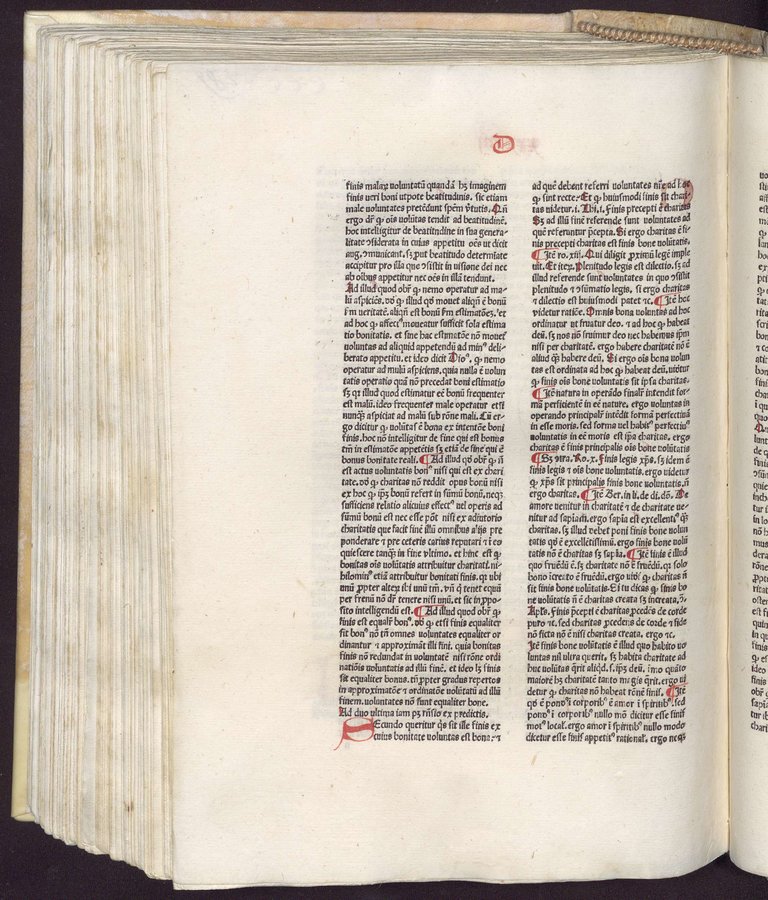 D
finis malaꝝ voluntatū quandā hꝫ imaginem
finis veri boni utpote beatitudinis. sic etiam
male voluntates pretēdunt spēm v̄tutis. Qn̄
ergo dr̄ ꝙ oīs volūtas tendit ad beatitudinē,
hoc intelligitur de beatitudine in sua genera
litate ↄsiderata in cuius appetitu oēs ut dicit
aug. ↄmunicant. sꝫ put beatitudo determīate
accipitur pro illa que ↄsistit in visione dei nec
ab oībus appetitur nec oēs in illā tendunt.
Ad illud quod obr̄ ꝙ nemo operatur ad ma
lū aspiciēs. dō ꝙ illud qd̄ mouet aliqn̄ ē bonū
ad hoc ꝙ affectꝰ moueatur sufficit sola estima
tio bonitatis. et sine hac estimatōe nō mouet̄
voluntas ad aliquid appetendū ad minꝰ deli
berato appetitu. et ideo dicit Dioꝰ. ꝙ nemo
operatur ad malū aspiciens. quia nulla ē volun
tatis operatio quā nō precedat boni estimatio
sꝫ qꝛ illud quod estimatur eē bonū frequenter
est malū. ideo frequenter male operatur etsi
nunꝙ̄ aspiciat ad malū sub rōne mali. Cū er
go dicitur ꝙ volūtas ē bona ex intentōe boni
finis. hoc nō intelligitur de fine qui est bonus
tm̄ in estimatōe appetētis sꝫ etiā de fine qui ē
bonus bonitate reali. ¶ Ad illud qd̄ obr̄ ꝙ nō
est actus voluntatis bonꝰ nisi qui est ex chari
tate. dō ꝙ charitas nō reddit opus bonū nisi
ex hoc ꝙ ipꝫ bonū refert in sūmū bonū. neqꝫ
sufficiens relatio alicuius effectꝰ vel operis ad
sūmū bonū est nec esse pōt nisi ex adiutorio
charitatis que facit finē illū omnibus alijs pre
ponderare ⁊ pre ceteris carius reputari ⁊ ī eo
quiescere tanꝙ̄ in fine vltimo. et hinc est ꝙ
bonitas oīs voluntatis attribuitur charitati. ni
hilominꝰ etiā attribuitur bonitati finis. qꝛ ubi
per frenū nō dr̄ tenere nisi unū. et sic in ꝓpo
sito intelligendū est. ¶ Ad illud quod obr̄ ꝙ
finis est equalr̄ bonꝰ. dō ꝙ etsi finis equaliter
sit bonꝰ nō tn̄ omnes voluntates equaliter or
dinantur ⁊ approximāt illi fini. quia bonitas
finis nō redundat in voluntatē nisi rōne ordi
natiōis voluntatis ad illū finē. et ideo lꝫ finis
sit equaliter bonus. tn̄ ꝓpter gradus repertos
in approximatōe ⁊ ordinatōe volūtatū ad illū
finem. voluntates nō sunt equaliter bone.
Ad duo ultima iam pꝫ rn̄sio ex predictis.
SEcundo queritur qͥs sit ille finis ex
cuius bonitate voluntas est bona. ⁊
ad quē debent referri uoluntates
ꝙ sunt recte. Et ꝙ huiusmodi finis sit chari
tas videtur. i. Thi. i. Finis precepti ē charitas
Sꝫ ad illū finē referende sunt voluntates ad
quē referuntur p̄cepta. Si ergo charitas ē fi
nis precepti charitas est finis bone volūtatis.
¶ Itē ro. xiij. Qui diligit ꝓximū legē imple
uit. Et iteꝝ. Plenitudo legis est dilectio. sꝫ ad
illud referende sunt voluntates in quo ↄsistit
plenitudo ⁊ ↄsūmatio legis. si ergo charitas
⁊ dilectio est huiusmodi patet ⁊c. ¶ Itē hoc
videtur ratiōe. Omnis bona uoluntas ad hoc
ordinatur ut fruatur deo. ⁊ ad hoc ꝙ habeat
deū. sꝫ nos nō fruimur deo nec habemus ip̄m
nisi per charitatē. ergo habere charitatē nō ē
aliud ꝙ̄ habere deū. Si ergo oīs bona volun
tas est ordinata ad hoc ꝙ habeat deū. uidetur
ꝙ finis oīs bone voluntatis sit ipsa charitas.
¶ Itē natura in operādo finalr̄ intendit for
mā perficientē in eē nature. ergo uoluntas in
operando principalr̄ intēdit formā perfectiuā
in esse moris. sed forma uel habitꝰ perfectiuꝰ
voluntatis in eē moris est ip̄a charitas. ergo
charitas ē finis principalis oīs bone volūtatis
¶ Sꝫ ↄtra. Ro. x. Finis legis xp̄s. sꝫ idem ē
finis legis ⁊ oīs bone voluntatis. ergo videtur
ꝙ xp̄s sit principalis finis bone voluntatis. nō
ergo charitas. ¶ Itē Ber. in li. de di. dō. De
amore venitur in charitatē ⁊ de charitate ve
nitur ad sapiam. ergo sapia est excellentiꝰ ꝙ̄
charitas. sꝫ illud debet poni finis bone volun
tatis qd̄ ē excellētissimū. ergo finis bone volū
tatis nō ē charitas sꝫ sapia. ¶ Itē finis ē illud
quo fruēdū ē. sꝫ charitate nō ē fruēdū. qꝛ solo
bono īcreato ē fruēdū. ergo vidꝫ ꝙ charitas nō
sit finis bone volūtatis. Et tu dicas ꝙ finis bo
ne volūtatis nō ē charitas creata sꝫ increata.
Apls. Finis p̄cepti ē charitas ꝓcedēs de corde
puro ⁊c. sed charitas ꝓcedens de corde ⁊ fide
nō ficta nō ē nisi charitas creata. ergo ⁊c.
Itē finis bone volūtatis ē illud quo habito vo
luntas nil ultra querit. sꝫ habita charitate ad
huc volūtas qrit aliqd. s. ip̄ꝫ deū. imo quāto
maiorē hꝫ charitatē tanto magis qrit. ergo ui
detur ꝙ charitas nō habeat rōnē finis. ¶ Itē
qd̄ ē pondꝰ ī corporibꝰ ē amor ī spiritibꝰ. sed
pondꝰ ī corporibꝰ nullo mō dicitur esse finis
motꝰ local. ergo amor ī spiritibꝰ nullo modo
dicetur esse finis appetitꝰ rational. ergo neqꝫ